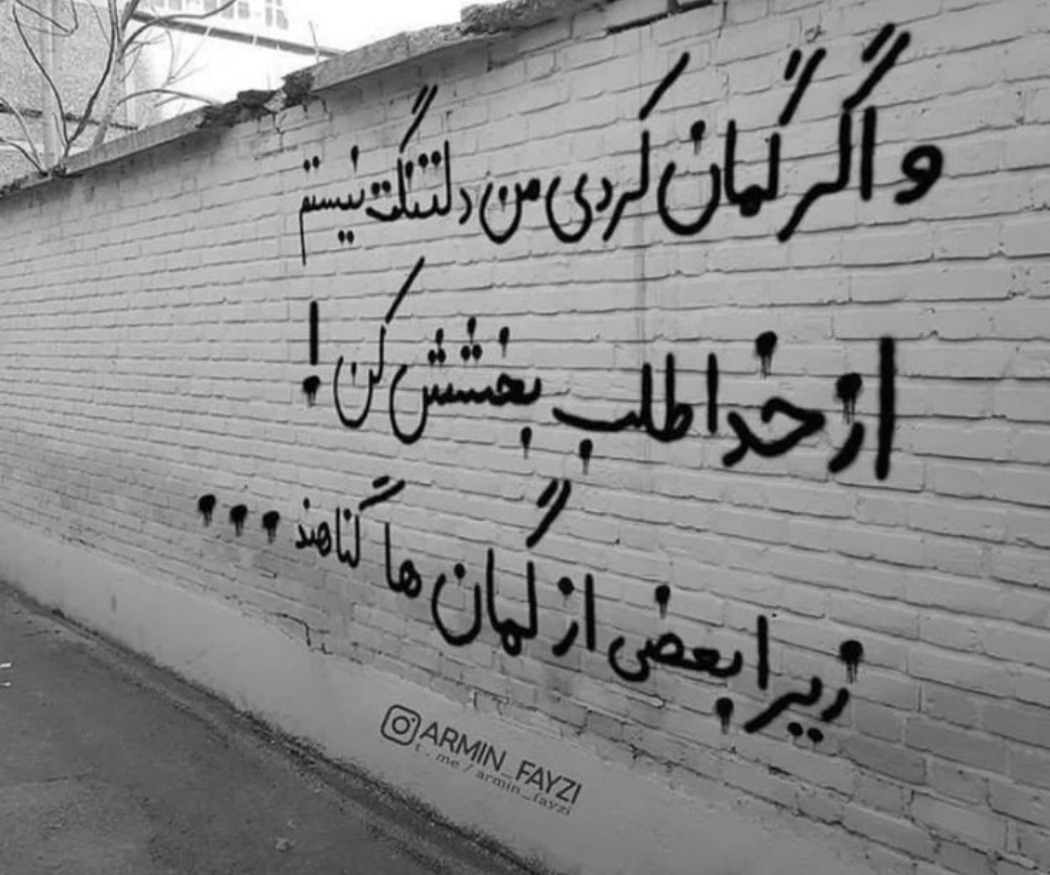 و اگر گمان کردی من دلتنگت نیستم
از خدا طلب بخشش کن!
زیرا بعضی از گمان ها گناهند...
ARMIN_FAYZI
t.me/armin_fayzi